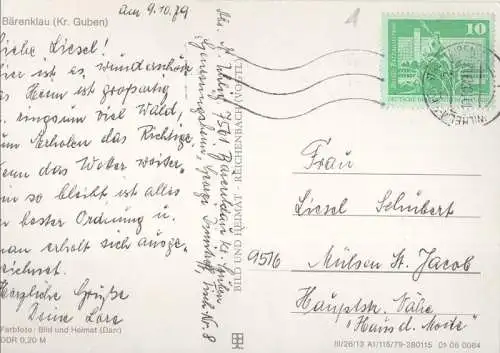 am 9.10.79
Bärenklau (Kr. Guben)
Liebe Liesel!
Hier ist es wunderschön
das Heim ist großartig
ringsum viel Wald,
zum Erholen das Richtige
Wenn das Wetter weiter-
hin so bleibt ist alles
in bester Ordnung u.
man erholt sich ausge-
zeichnet.
Herzliche Grüße
Deine Lore
Farbfoto: Bild und Heimat (Darr)
DDR 0,20 M
7501 Bärenklau Kr. Guben
Genesungsheim, Georgi Dimitroff, Tisch Nr. 8
BILD UND HEIMAT · REICHENBACH (VOGTL)
10
Frau
Liesel Schubert
9516 Mülsen St. Jacob
Hauptstr. Nähe
"Haus d. Mode"
III/26/13 A1/115/79-280115 01 06 0084